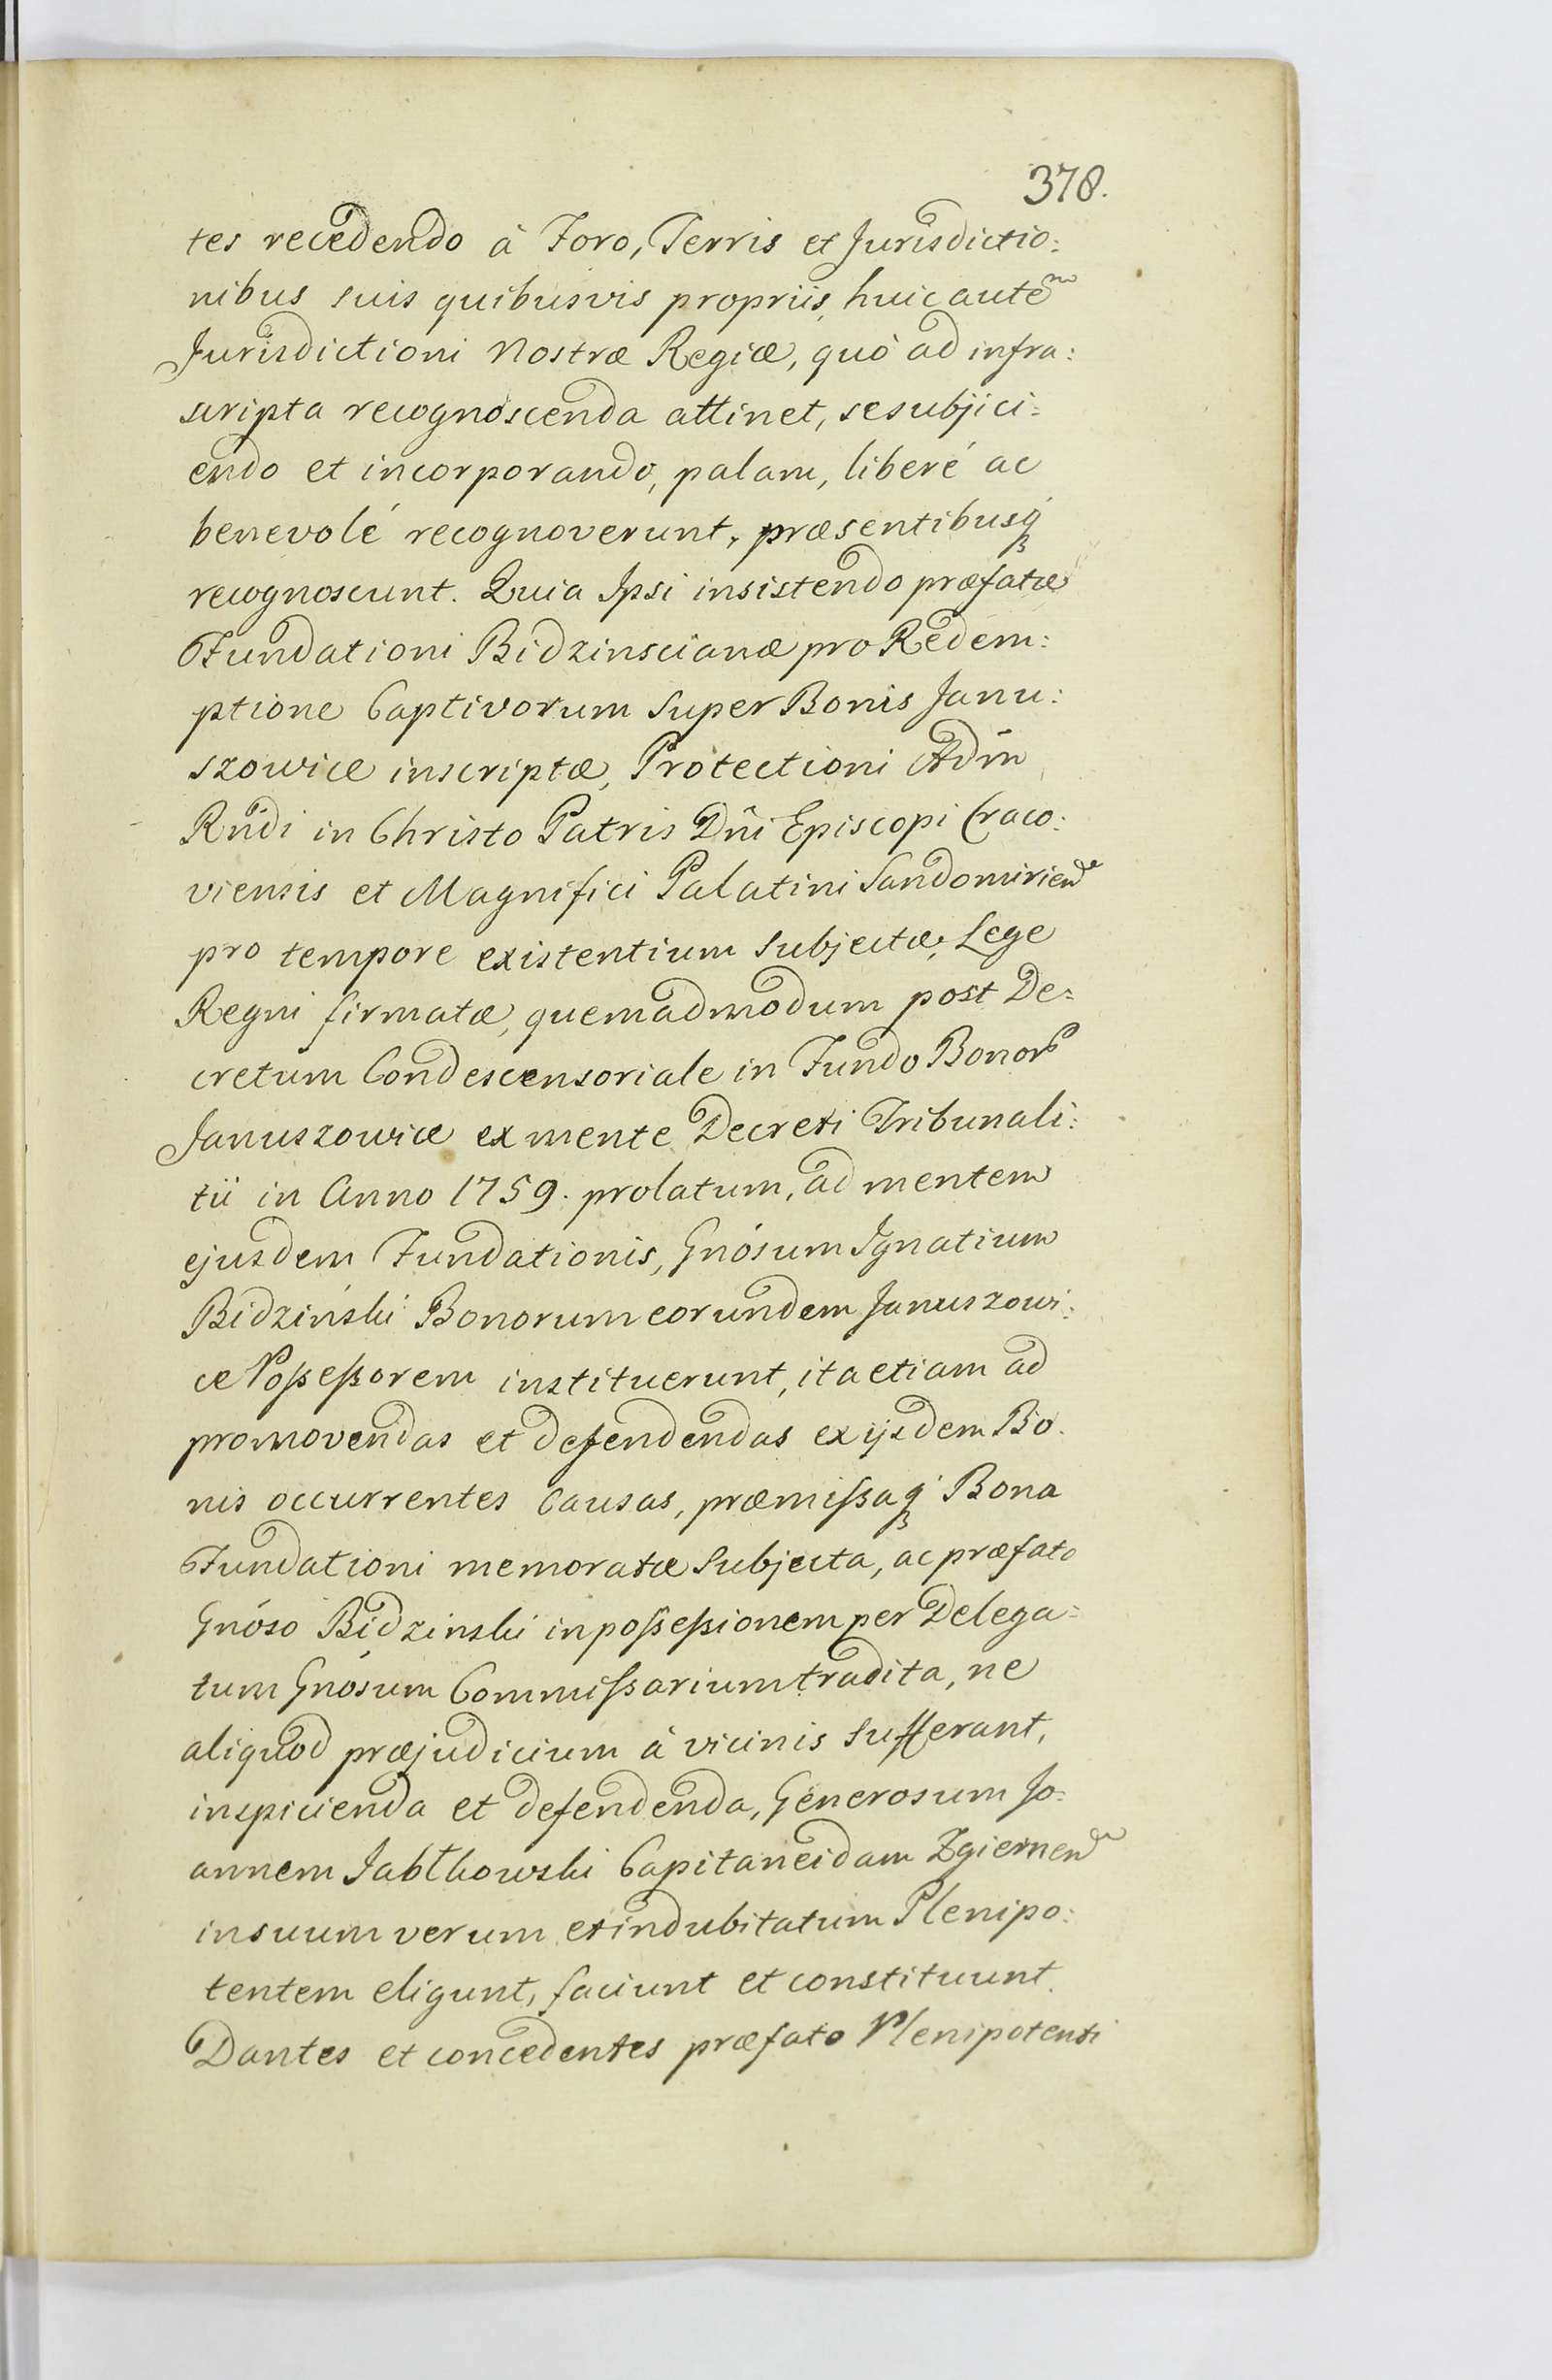 378.
tes recedendo à Foro, Terris et Jurisdictio:
nibus suis quibusvis propriis, huic autem
Jurisdictioni Nostræ Regiæ, quò ad infra:
scripta recognoscenda attinet, se subjici:
endo et incorporando, palam, liberé ac
benevolé recognoverunt, præsentibusq́
recognoscunt. Quia Ipsi insistendo præfatæ
Fundationi Bidzinscianæ pro Redem:
ptione Captivorum super Bonis Janu:
szowice inscriptæ, Protectioni Adm̃
Rñdi in Christo Patris Dñi Episcopi Craco:
viensis et Magnifici Palatini Sandomirien̄
pro tempore existentium subjectæ, Lege
Regni firmatæ, quemadmodum post De:
cretum Condescensoriale in Fundo Bonor̃
Januszowice ex mente Decreti Tribunali:
tii in Anno 1759. prolatum, ad mentem
ejusdem Fundationis, Gnósum Ignatium
Bidziński Bonorum eorundem Januszowi:
ce Poßeßorem instituerunt, ita etiam ad
promovendas et defendendas ex ijsdem Bo:
nis occurrentes causas, præmißaq́ Bona
Fundationi memoratæ subjecta, ac præfato
Gnóso Bidzinski in poßeßionem per Delega:
tum Gnósum Commißarium tradita, ne
aliquod præjudicium à vicinis sufferant,
inspicienda et defendenda, Generosum Jo:
annem Jabłkowski Capitaneidam Zgiernen̄
in suum verum et indubitatum Plenipo:
tentem eligunt, faciunt et constituunt.
Dantes et concedentes præfato Plenipotenti